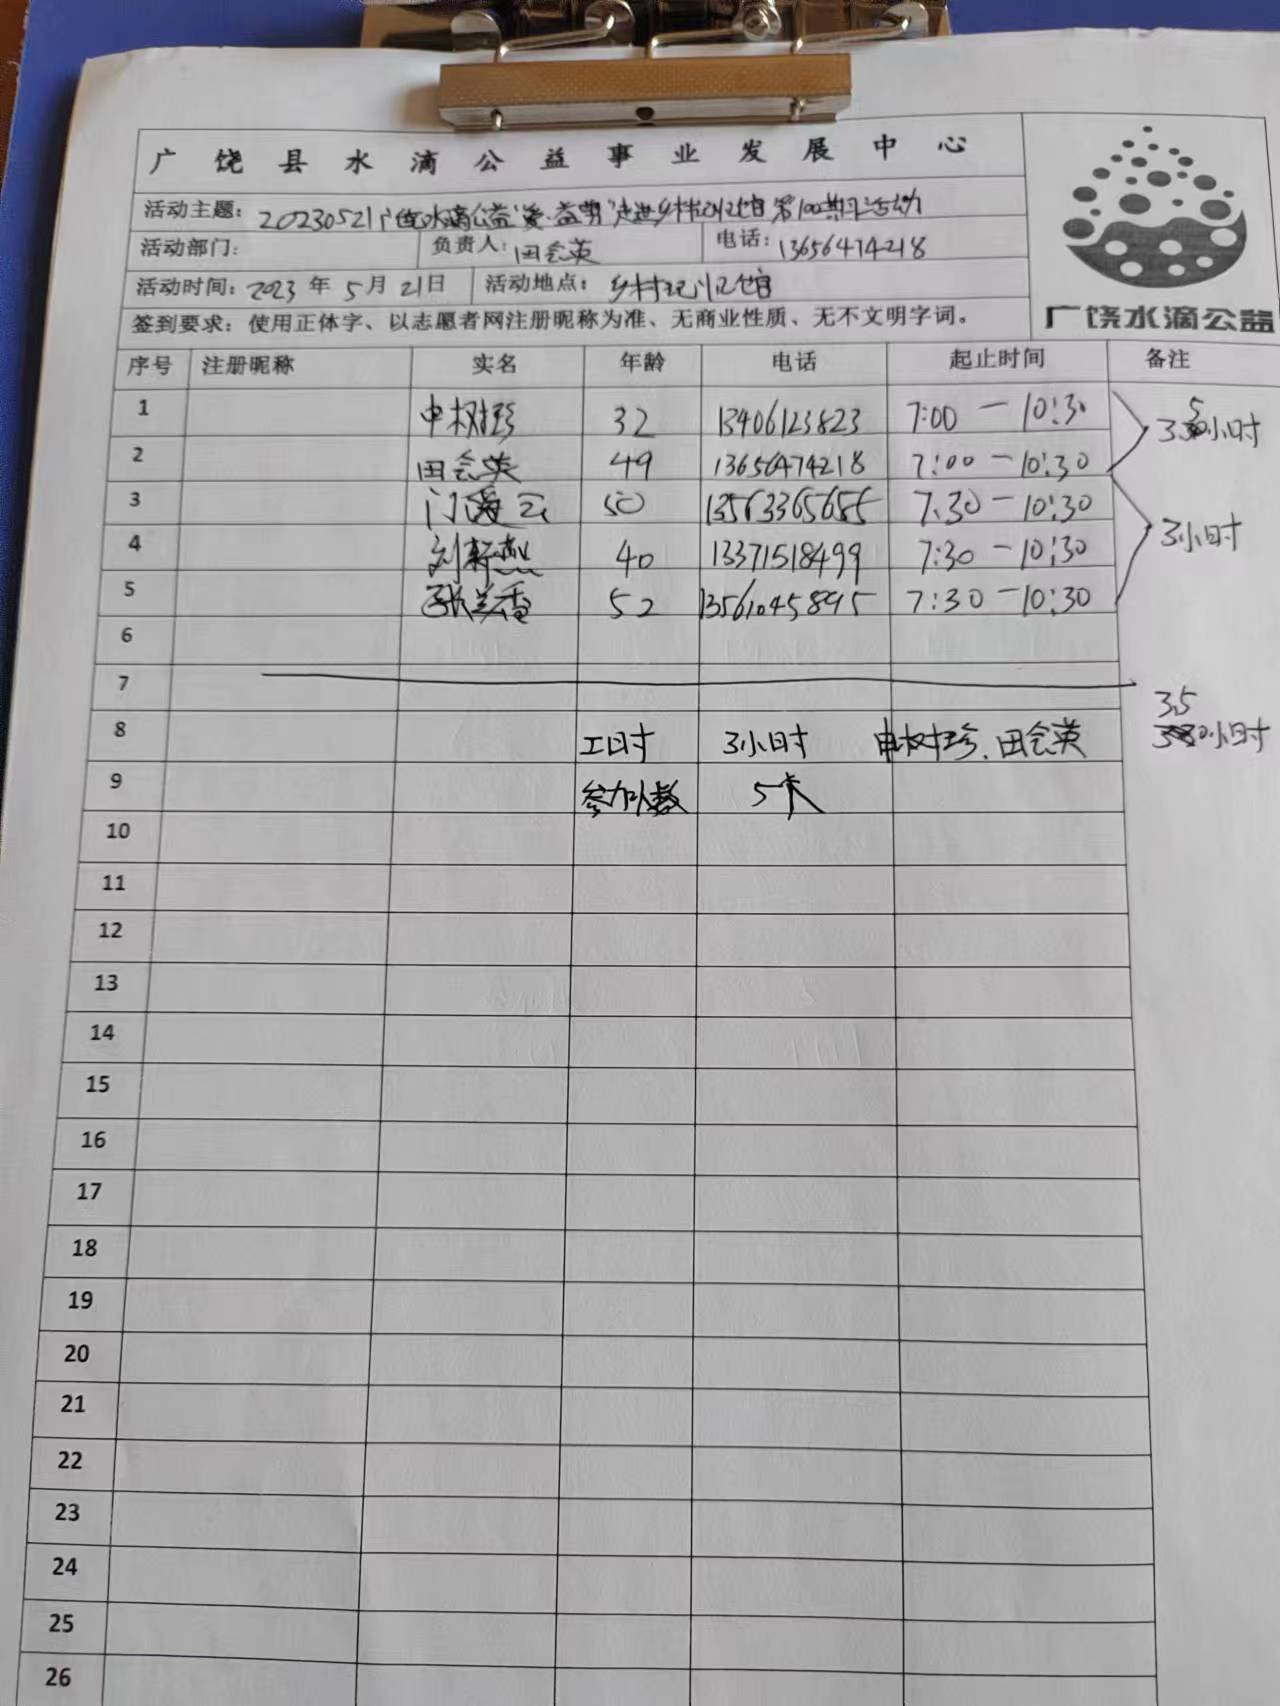 广饶县水滴公益事业发展中心
活动主题：20230521广饶水滴公益"爱·益粥"走进乡村记忆馆第100期活动
活动部门： 负责人：田会英 电话：13656474218
活动时间：2023年5月21日 活动地点：乡村记忆馆
签到要求：使用正体字、以志愿者网注册昵称为准、无商业性质、无不文明字词。
广饶水滴公益
序号 注册昵称 实名 年龄 电话 起止时间 备注
1 申树珍 32 13406123823 7:00－10:30
3.5小时
2 田会英 49 13656474218 7:00－10:30
3 门爱云 50 13563365655 7:30－10:30
3小时
4 刘新燕 40 13371518499 7:30－10:30
5 张兰香 52 13561045895 7:30－10:30
6
7
8 工时 3小时 申树珍.田会英 3.5小时
9 参加人数 5人
10
11
12
13
14
15
16
17
18
19
20
21
22
23
24
25
26